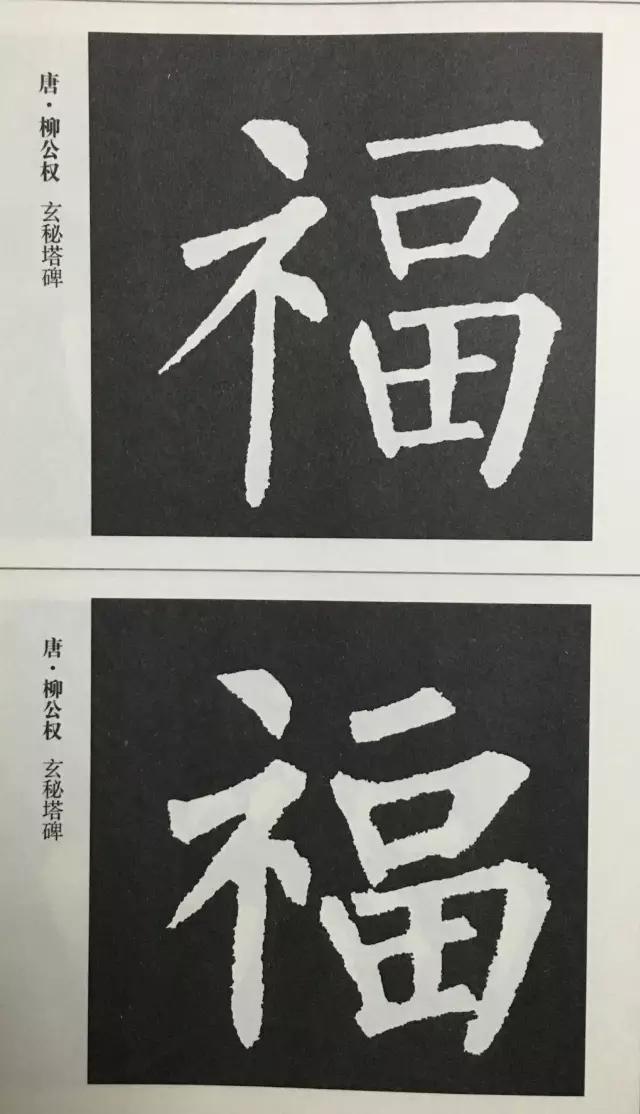 唐·柳公权 玄秘塔碑
福
唐·柳公权 玄秘塔碑
福